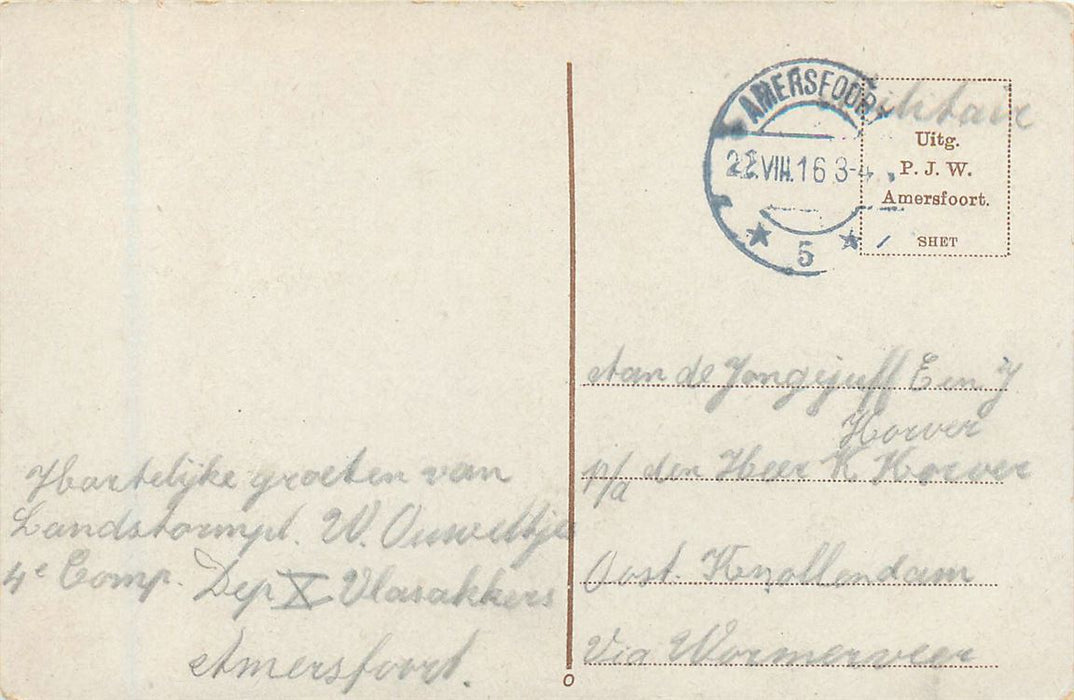 Hartelijke groeten van
Landstormpl. W. Ouweltjes
4e Comp. Dep X Vlasakkers
Amersfoort.
AMERSFOORT
22.VIII.16 3-4
5
Militair
Uitg.
P. J. W.
Amersfoort.
SHET
Aan de Jongejuff E en J
Korver
p/a den Heer K Korver
Oost. Knollendam
Via Wormerveer